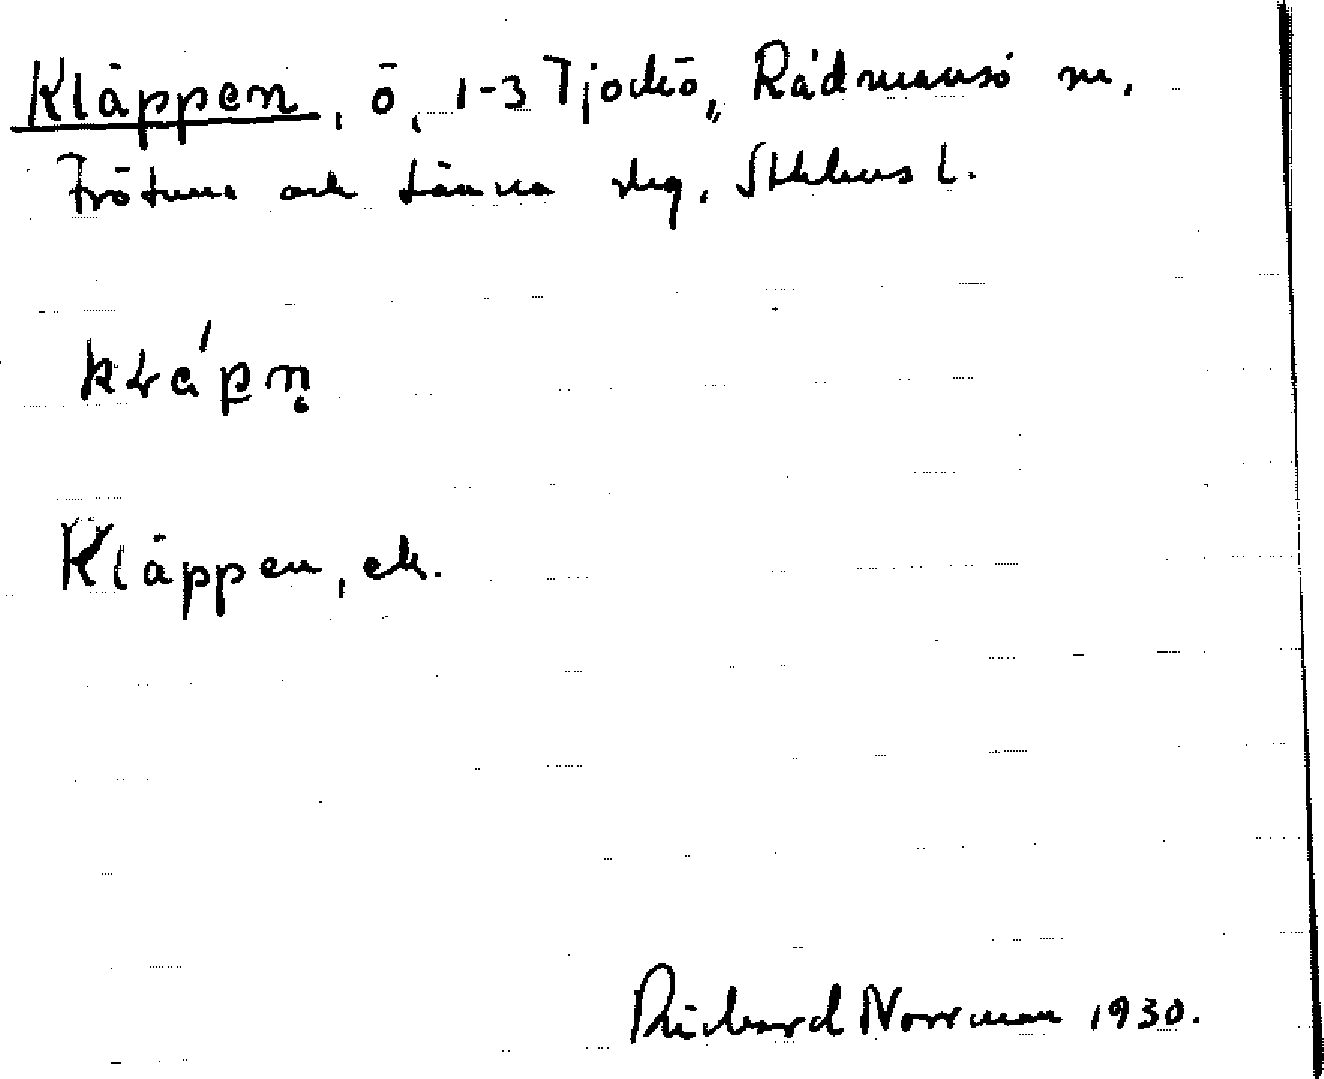 Kläppen, ö, 1-3 Tjockö, Rådmansö sn,
Frötuna och Länna skg, Sthlms l.
Kläppen, ek.
Richard Norrman 1930.